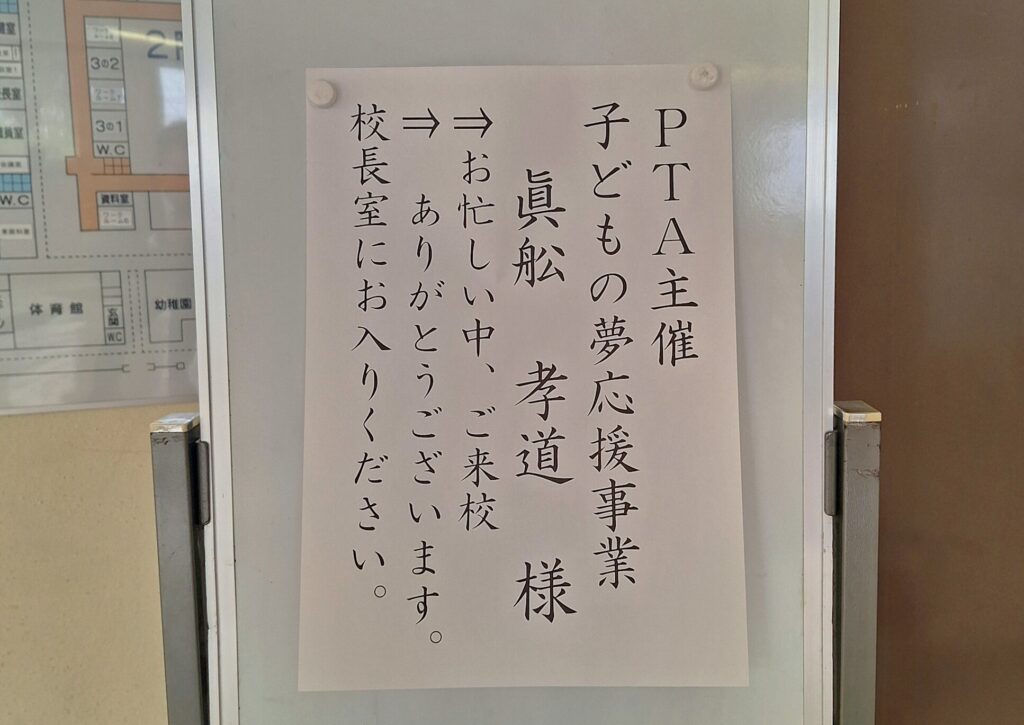 PTA主催
子どもの夢応援事業
眞舩 孝道 様
⇒お忙しい中、ご来校
⇒ ありがとうございます。
校長室にお入りください。
3の2
3の1
W.C
資料室
W.C
体育館
玄関
WC
幼稚園